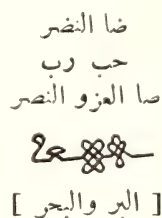 ضا النضر
حب رب
صا العز و النصر
[ البر والبحر ]